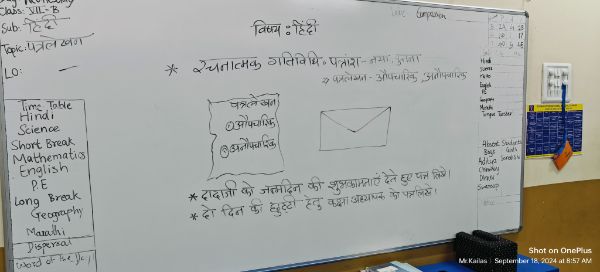 Class: VII-B
Sub: हिंदी
Topic: पत्रलेखन
LO:
विषय : हिंदी
* रचनात्मक गतिविधि :- पत्रांश -
पत्रलेखन - औपचारिक, अनौपचारिक
पत्रलेखन
① औपचारिक
② अनौपचारिक
* दादाजी को जन्मदिन की शुभकामनाएँ देते हुए पत्र लिखे।
* दो दिन की छुट्टी हेतु कक्षा अध्यापक को पत्र लिखे।
Time Table
Hindi
Science
Short Break
Mathematics
English
P.E
Long Break
Geography
Marathi
Dispersal
Word of the Day
Hindi
Science
Maths
English
PE
Geography
Marathi
Absent Students
Boys Girls
Shot on OnePlus
Mr.Kailas | September 18, 2024 at 8:57 AM